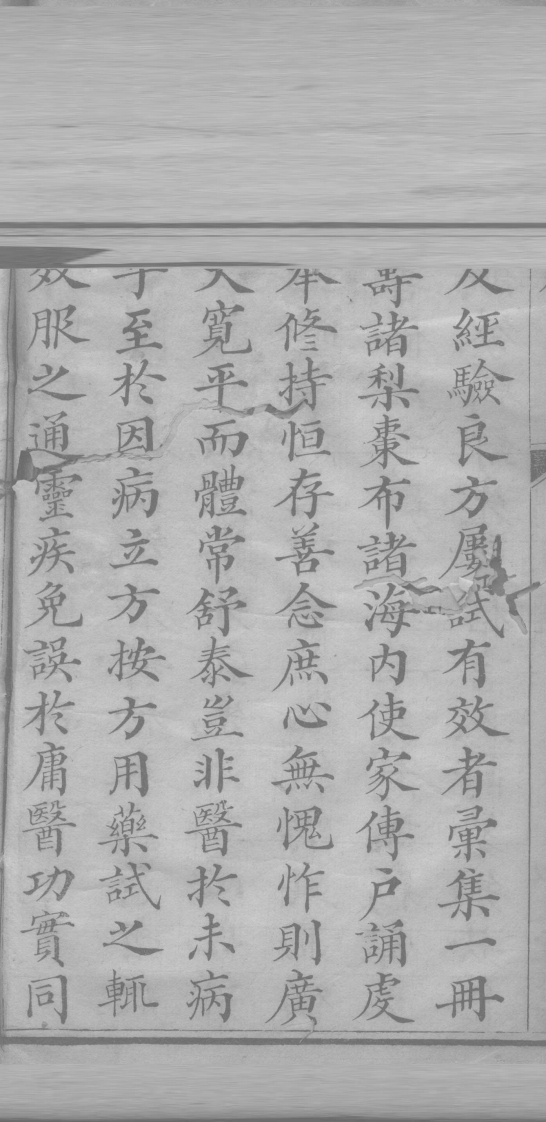 及經驗良方屢試有效者彙集一冊
壽諸梨棗布諸海内使家傳戶誦虔
奉修持恒存善念庶心無愧怍則廣
大寬平而體常舒泰豈非醫於未病
乎至於因病立方按方用藥試之輒
效服之通靈疾免誤於庸醫功實同